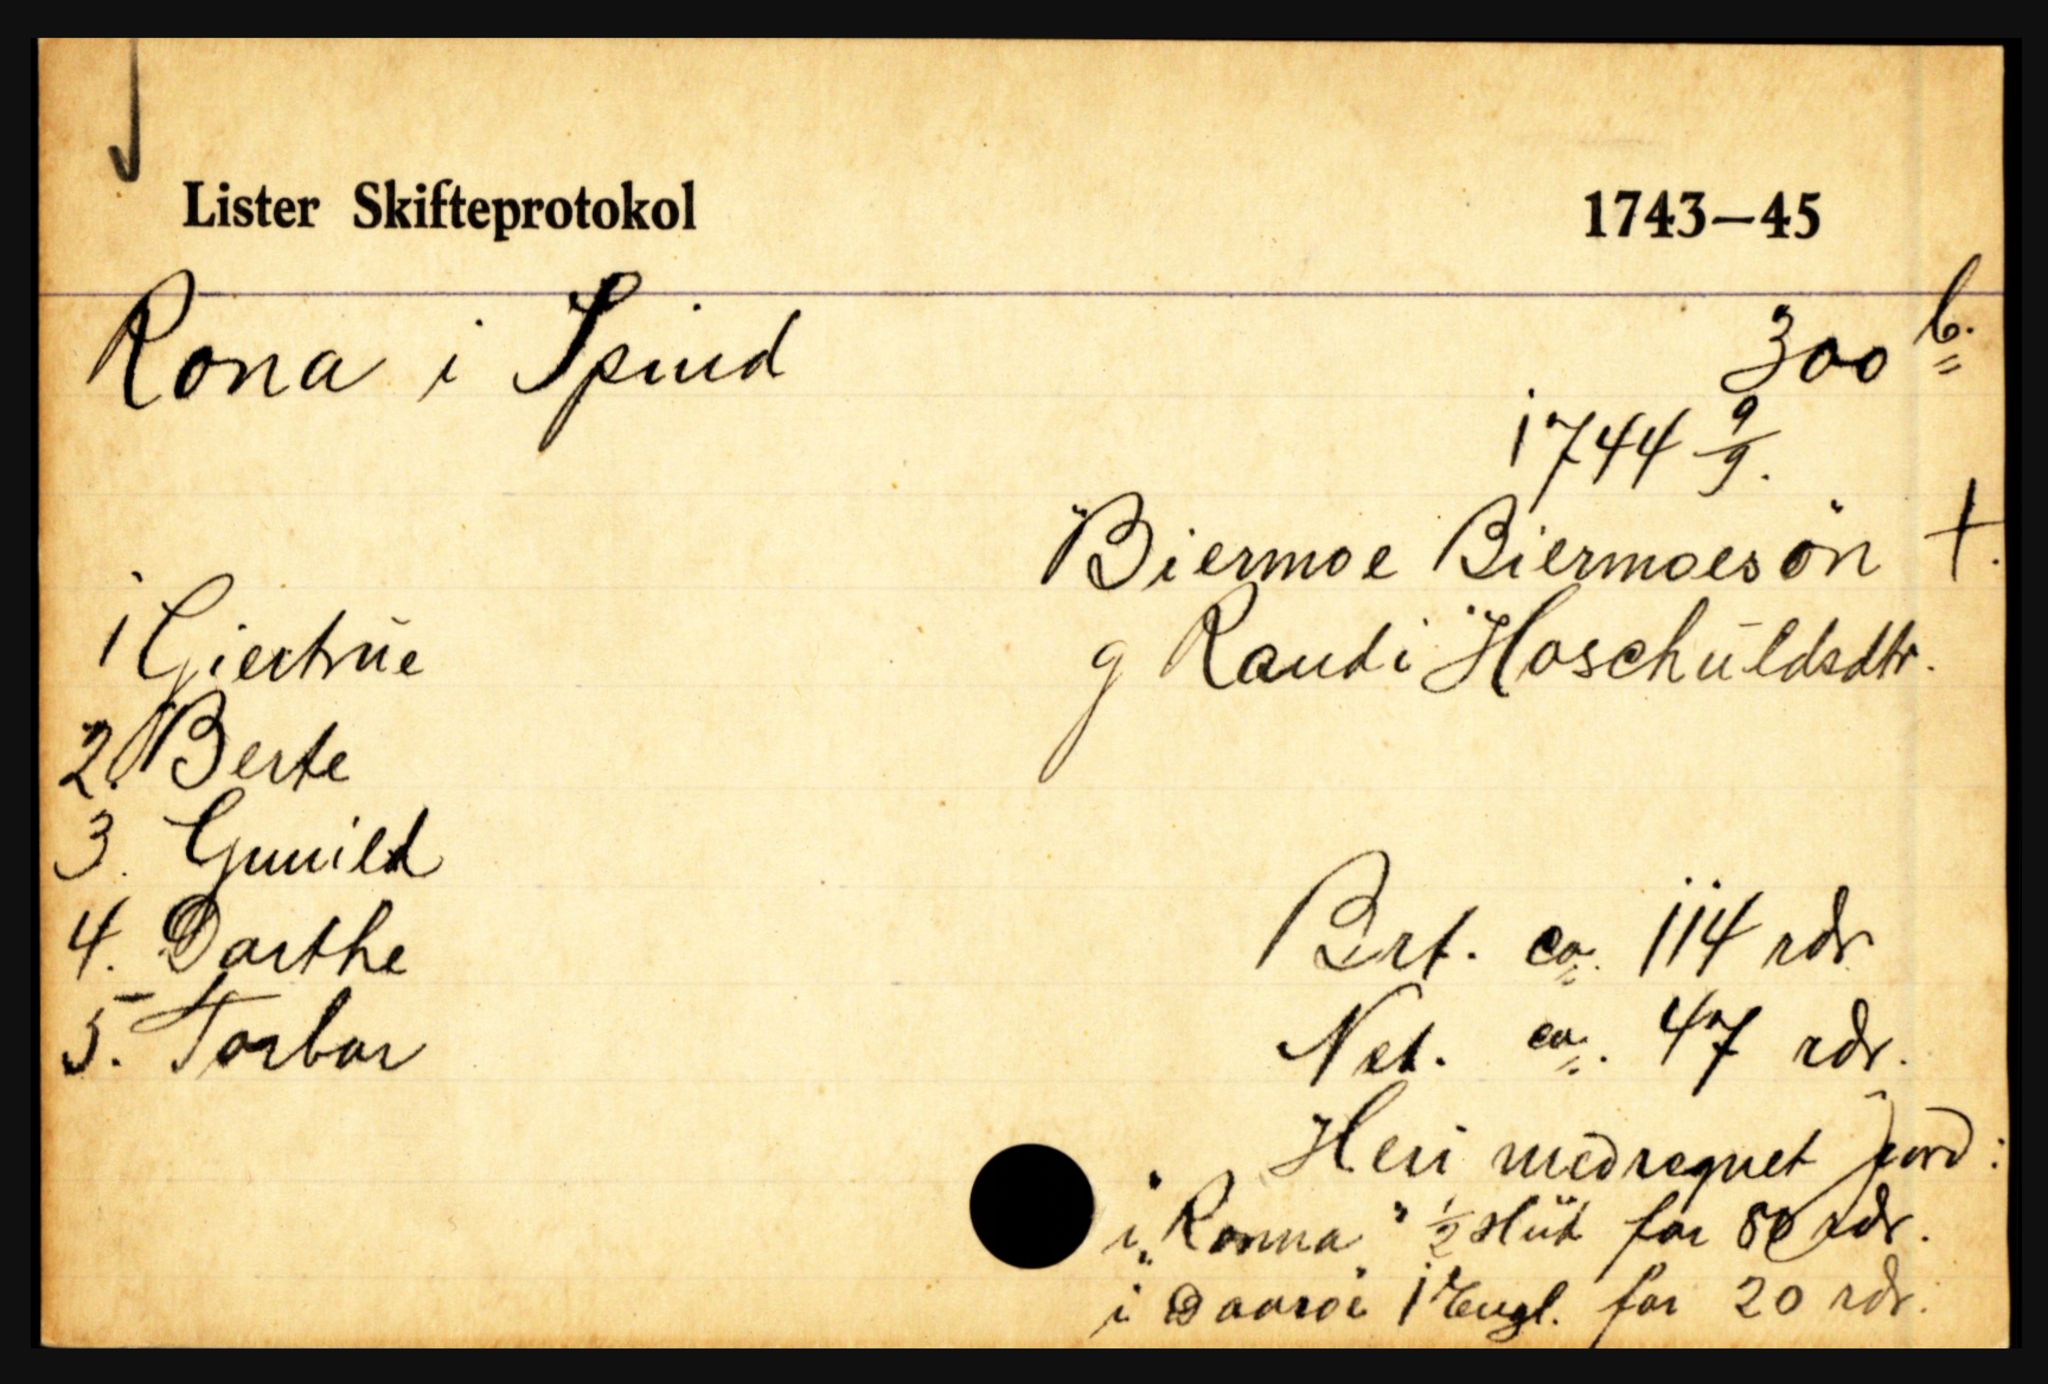 Lister Skifteprotokol 1743–45
Rona i Spind 300 b.
1744 9/9.
Biermoe Biermoesön †.
g Randi Hoschüldsdtr.
1 Giertrüe
2. Berte
3. Gunild
4. Dorthe
5. Torbor
Brt. ca. 114 rdr
Net. ca. 47 rdr.
Heri medregnet jord:
i "Ronna" 1/2 Hüd for 80 rdr.
i Daaröe 1 Engl. for 20 rdr.